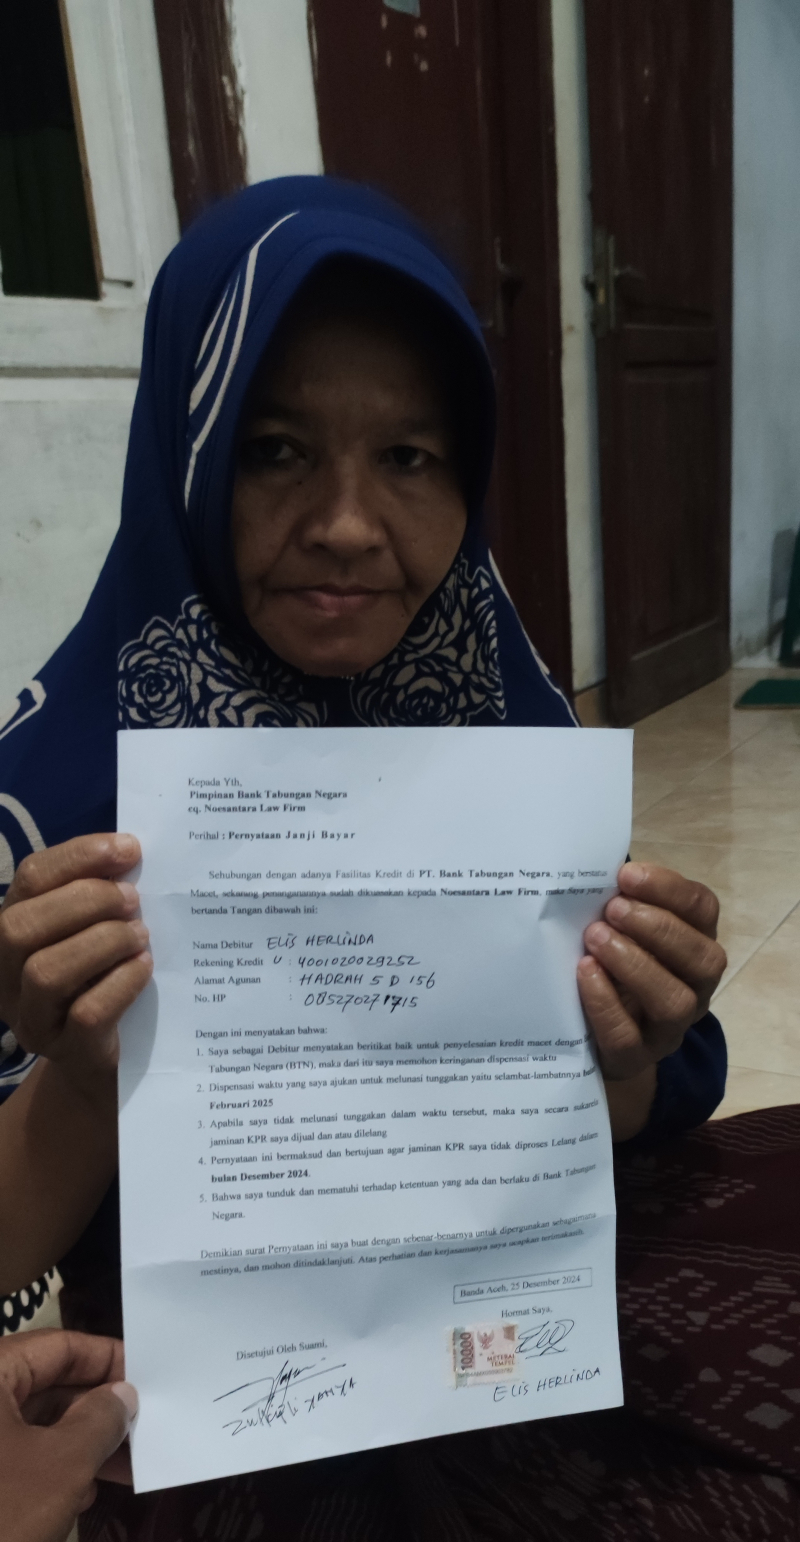 Kepada Yth,
Pimpinan Bank Tabungan Negara
cq. Noesantara Law Firm
Perihal : Pernyataan Janji Bayar
Sehubungan dengan adanya Fasilitas Kredit di PT. Bank Tabungan Negara, yang berstatus
Macet, sekarang penanganannya sudah dikuasakan kepada Noesantara Law Firm, maka saya yang
bertanda Tangan dibawah ini:
Nama Debitur ELIS HERLINDA
Rekening Kredit : 4001020029252
Alamat Agunan : HADRAH 5 D 156
No. HP :
Dengan ini menyatakan bahwa:
1. Saya sebagai Debitur menyatakan beritikat baik untuk penyelesaian kredit macet dengan
Tabungan Negara (BTN), maka dari itu saya memohon keringanan dispensasi waktu
2. Dispensasi waktu yang saya ajukan untuk melunasi tunggakan yaitu selambat-lambatnnya bulan
Februari 2025
3. Apabila saya tidak melunasi tunggakan dalam waktu tersebut, maka saya secara sukarela
jaminan KPR saya dijual dan atau dilelang
4. Pernyataan ini bermaksud dan bertujuan agar jaminan KPR saya tidak diproses Lelang dalam
bulan Desember 2024.
5. Bahwa saya tunduk dan mematuhi terhadap ketentuan yang ada dan berlaku di Bank Tabungan
Negara.
Demikian surat Pernyataan ini saya buat dengan sebenar-benarnya untuk dipergunakan sebagaimana
mestinya, dan mohon ditindaklanjuti. Atas perhatian dan kerjasamanya saya ucapkan terimakasih.
Banda Aceh, 25 Desember 2024
Hormat Saya,
Disetujui Oleh Suami,
10000
METERAI
TEMPEL
ELIS HERLINDA
Zulkifli YAHYA